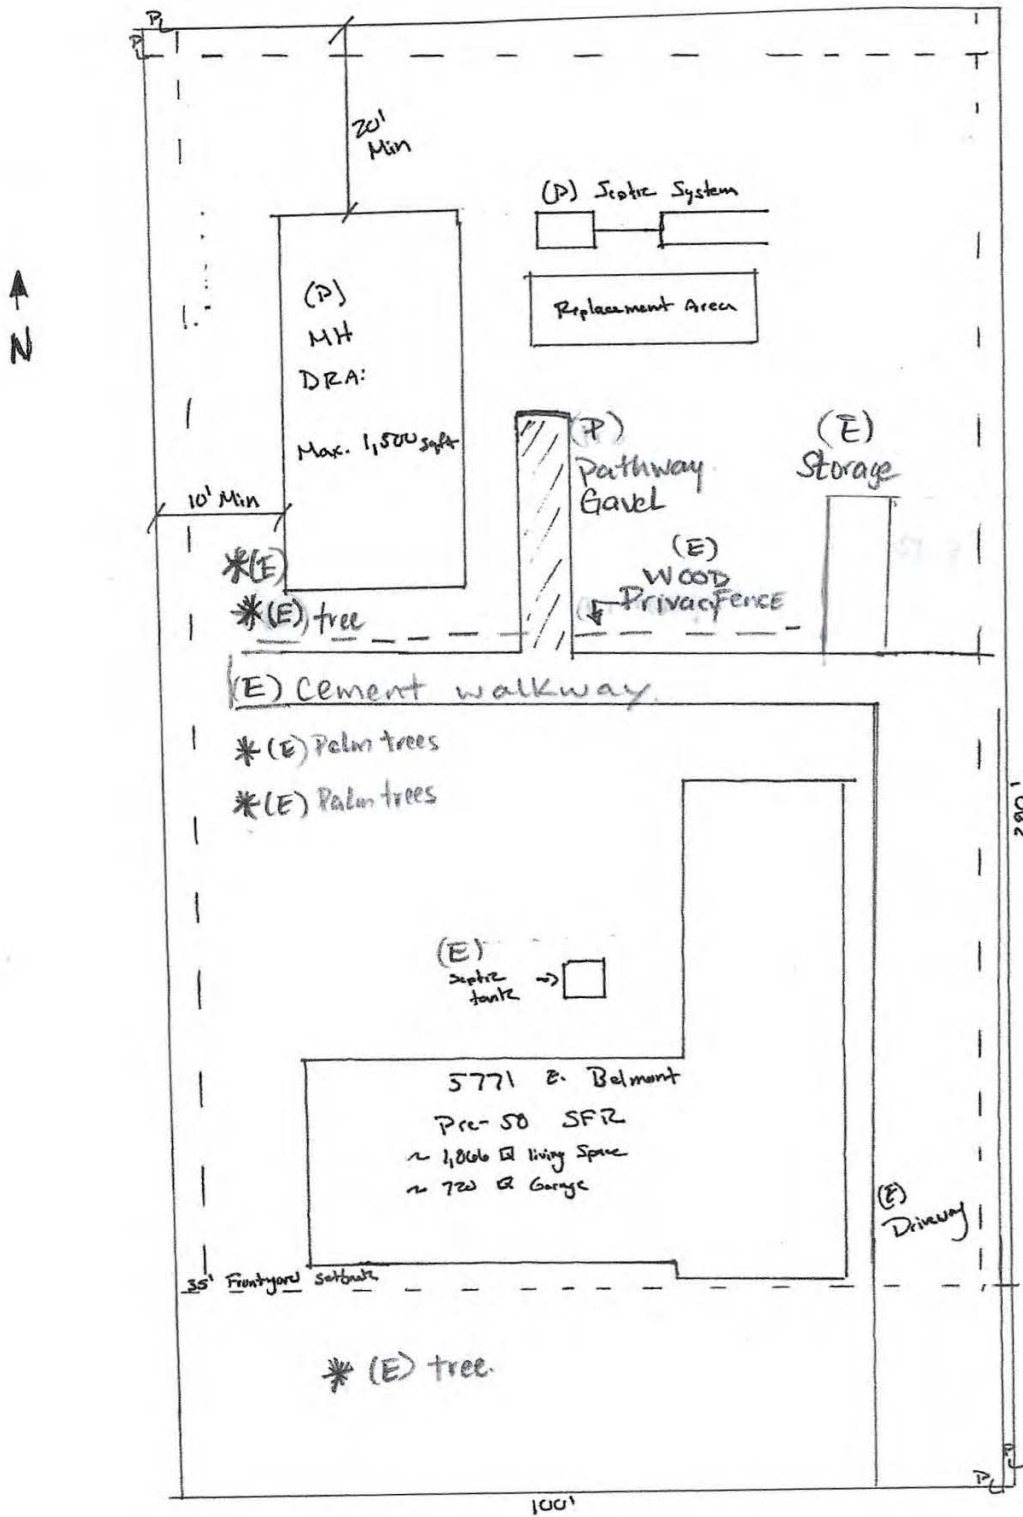 PL
PL
20'
Min
(P) Septic System
Replacement Area
N
(P)
MH
DRA:
Max. 1,500 sqft
10' Min
(P)
Pathway
Gavel
(E)
Storage
(E)
WOOD
Privacy Fence
*(E)
*(E) tree
(E) Cement walkway.
*(E) Palm trees
*(E) Palm trees
(E)
septic
tank
5771 E. Belmont
Pre-50 SFR
living Space
~ 720 Garage
(E)
Driveway
35' Frontyard setback
* (E) tree.
PL
PL
100'